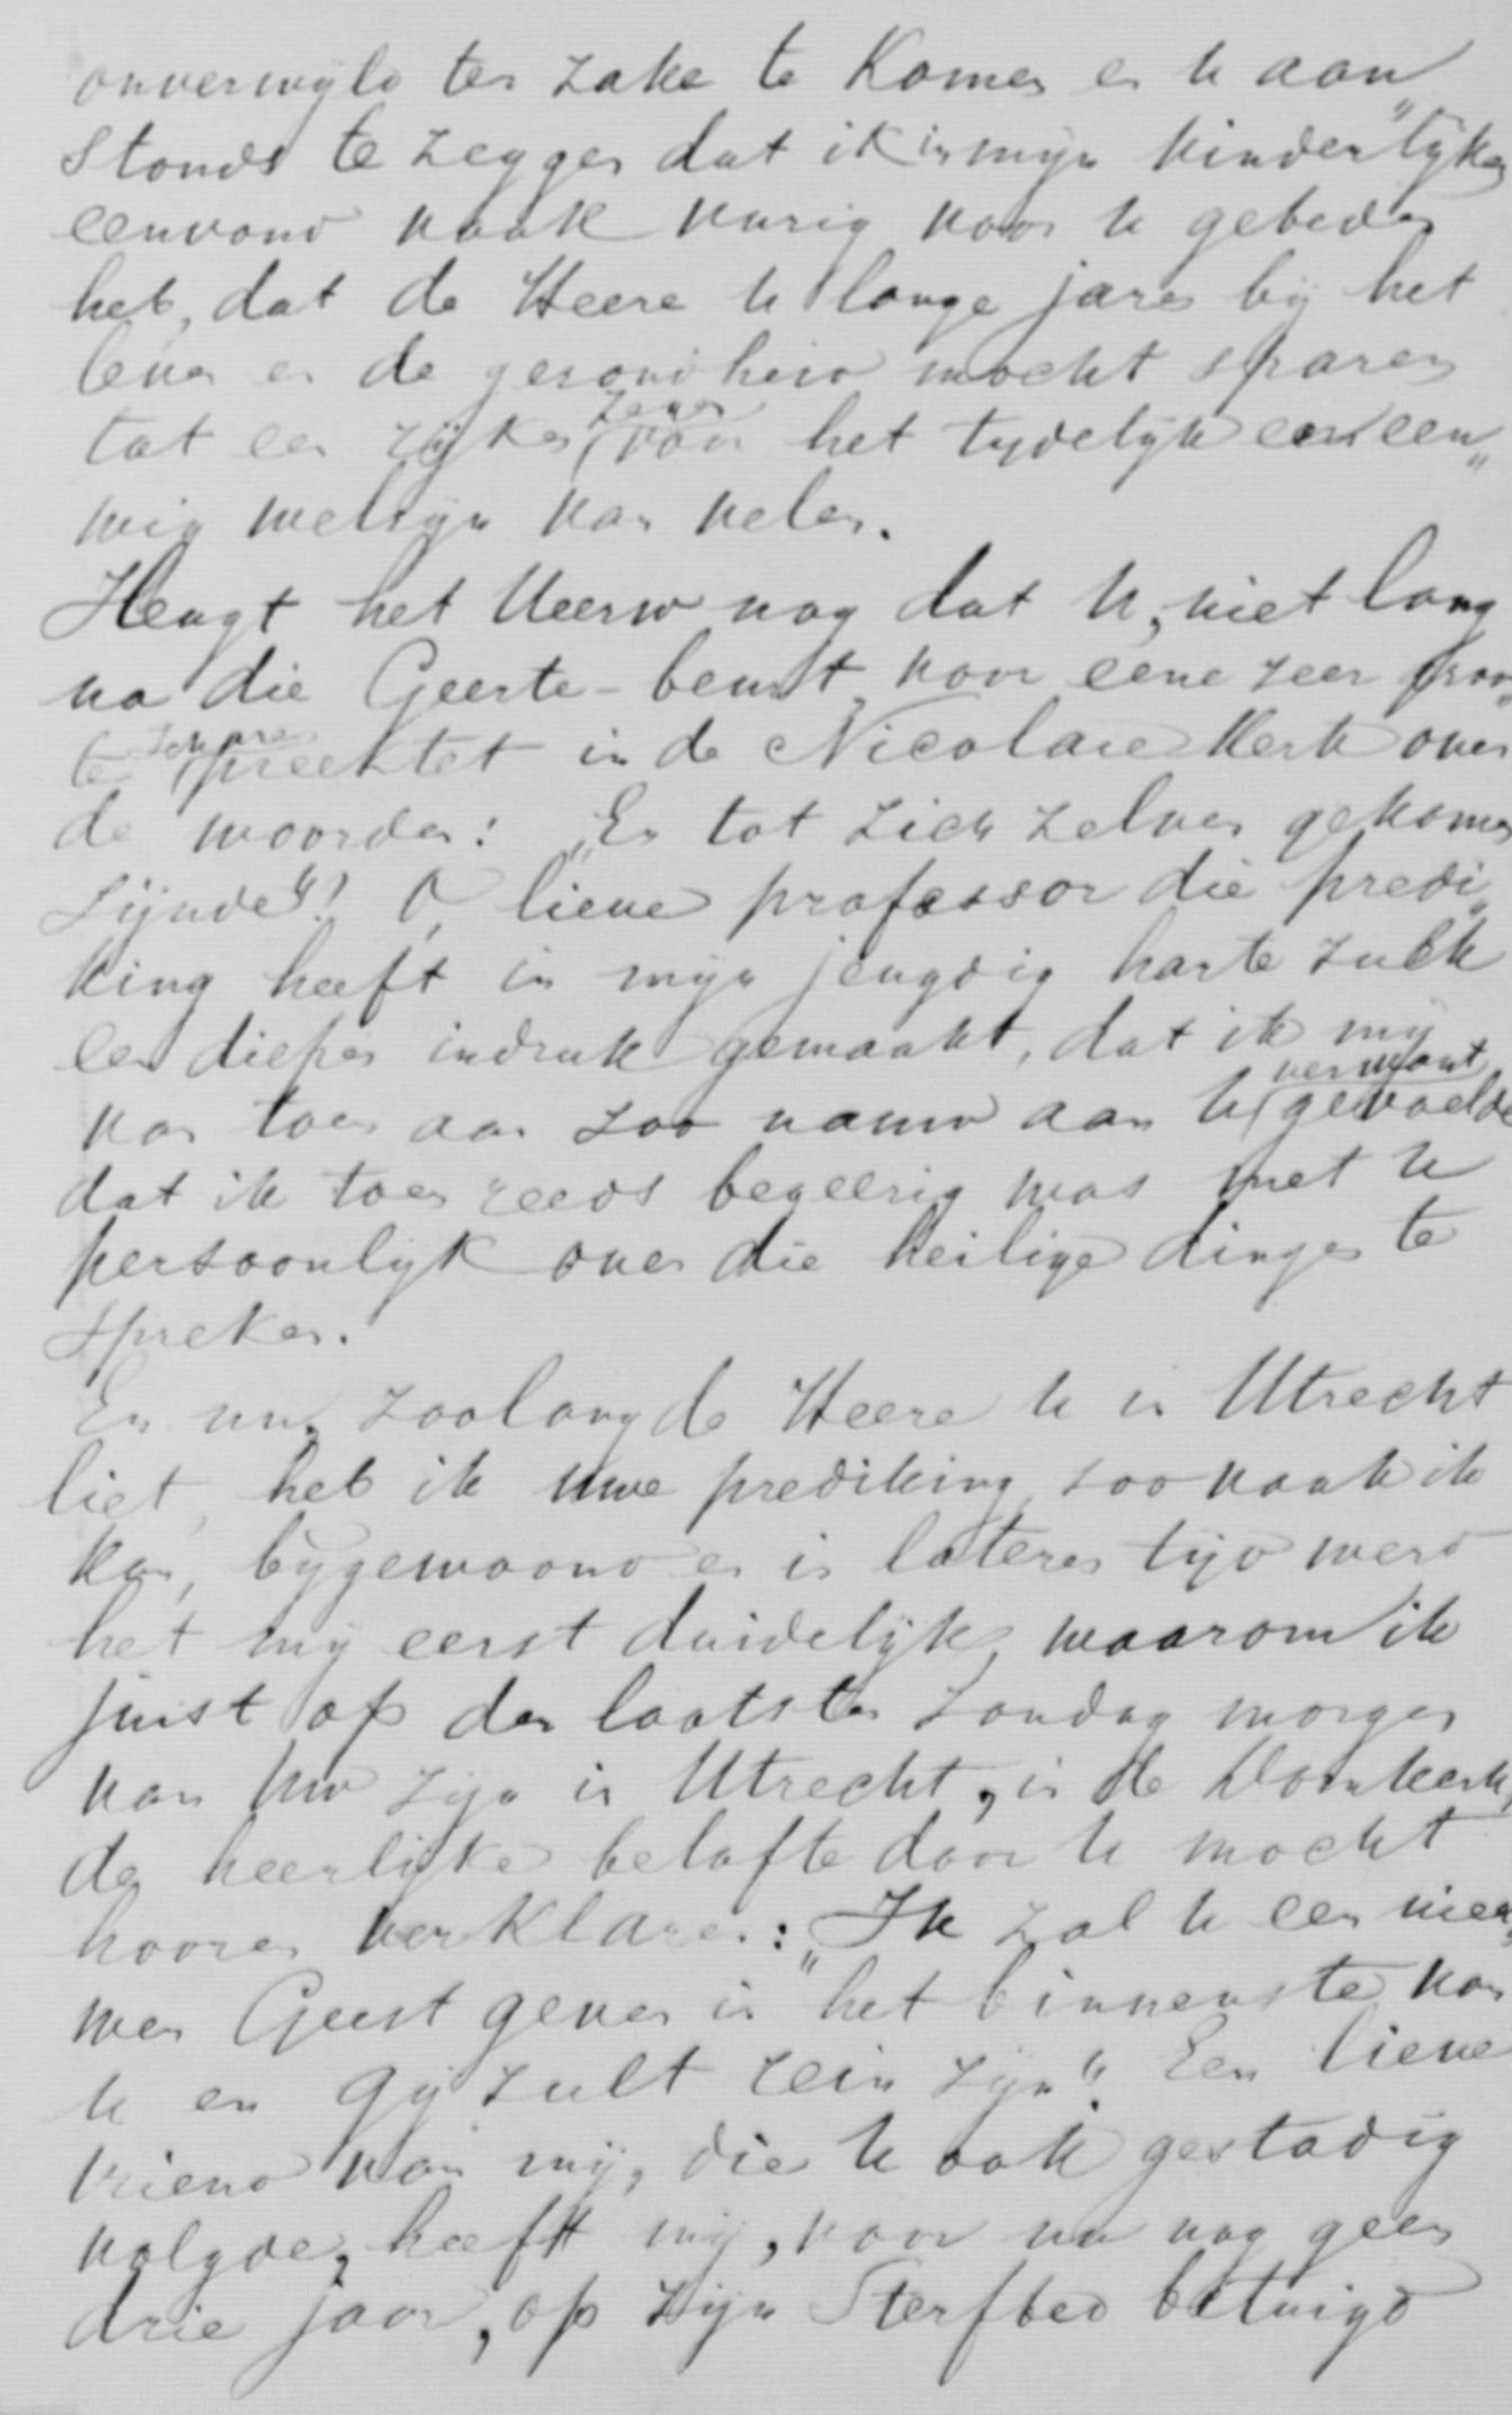 onverwyld ter zake te komen en U aan„
stonds te zeggen dat ik in mijn kinderlyken
eenvoud vaak vurig voor U gebeden
heb, dat de Heere U lange jaren bij het
leven en de gezondheid mocht sparen
tot een rijken zegen voor het tydelijk en eeu„
wig welzijn van velen.
Heugt het UEerw nog dat U, niet lang
na die Geerte-beurt, voor eene zeer groo„
te schare preektet in de Nicolaie Kerk over
de woorden: „En tot zich zelven gekomen
zijnde"! O, lieve professor die predi„
king heeft in mijn jeugdig harte zulk
een diepen indruk gemaakt, dat ik mij
van toen aan zoo nauw aan U verwant gevoelde
dat ik toen reeds begeerig was met U
persoonlijk over die heilige dingen te
spreken.
En nu, zoolang de Heere U in Utrecht
liet, heb ik uwe prediking, zoo vaak ik
kon, bijgewoond en in lateren tijd werd
het mij eerst duidelijk, waarom ik
juist op den laatsten Zondag morgen
van Uw zijn in Utrecht, in de Domkerk,
de heerlijke belofte door U mocht
hooren verklaren: „Ik zal U een nieu„
wen Geest geven in het binnenste van
U en gij zult rein zijn". Een lieve
vriend van mij, die U ook gestadig
volgde, heeft mij, voor nu nog geen
drie jaar, op zijn Sterfbed betuigd